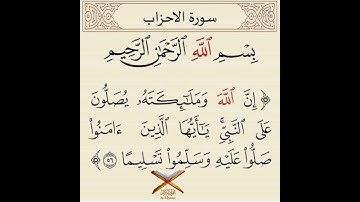 سورة الاحزاب
بِسْمِ ٱللَّهِ ٱلرَّحْمَٰنِ ٱلرَّحِيمِ
﴿ إِنَّ ٱللَّهَ وَمَلَٰٓئِكَتَهُۥ يُصَلُّونَ
عَلَى ٱلنَّبِيِّۚ يَٰٓأَيُّهَا ٱلَّذِينَ ءَامَنُوا۟
صَلُّوا۟ عَلَيْهِ وَسَلِّمُوا۟ تَسْلِيمًا ٥٦ ﴾